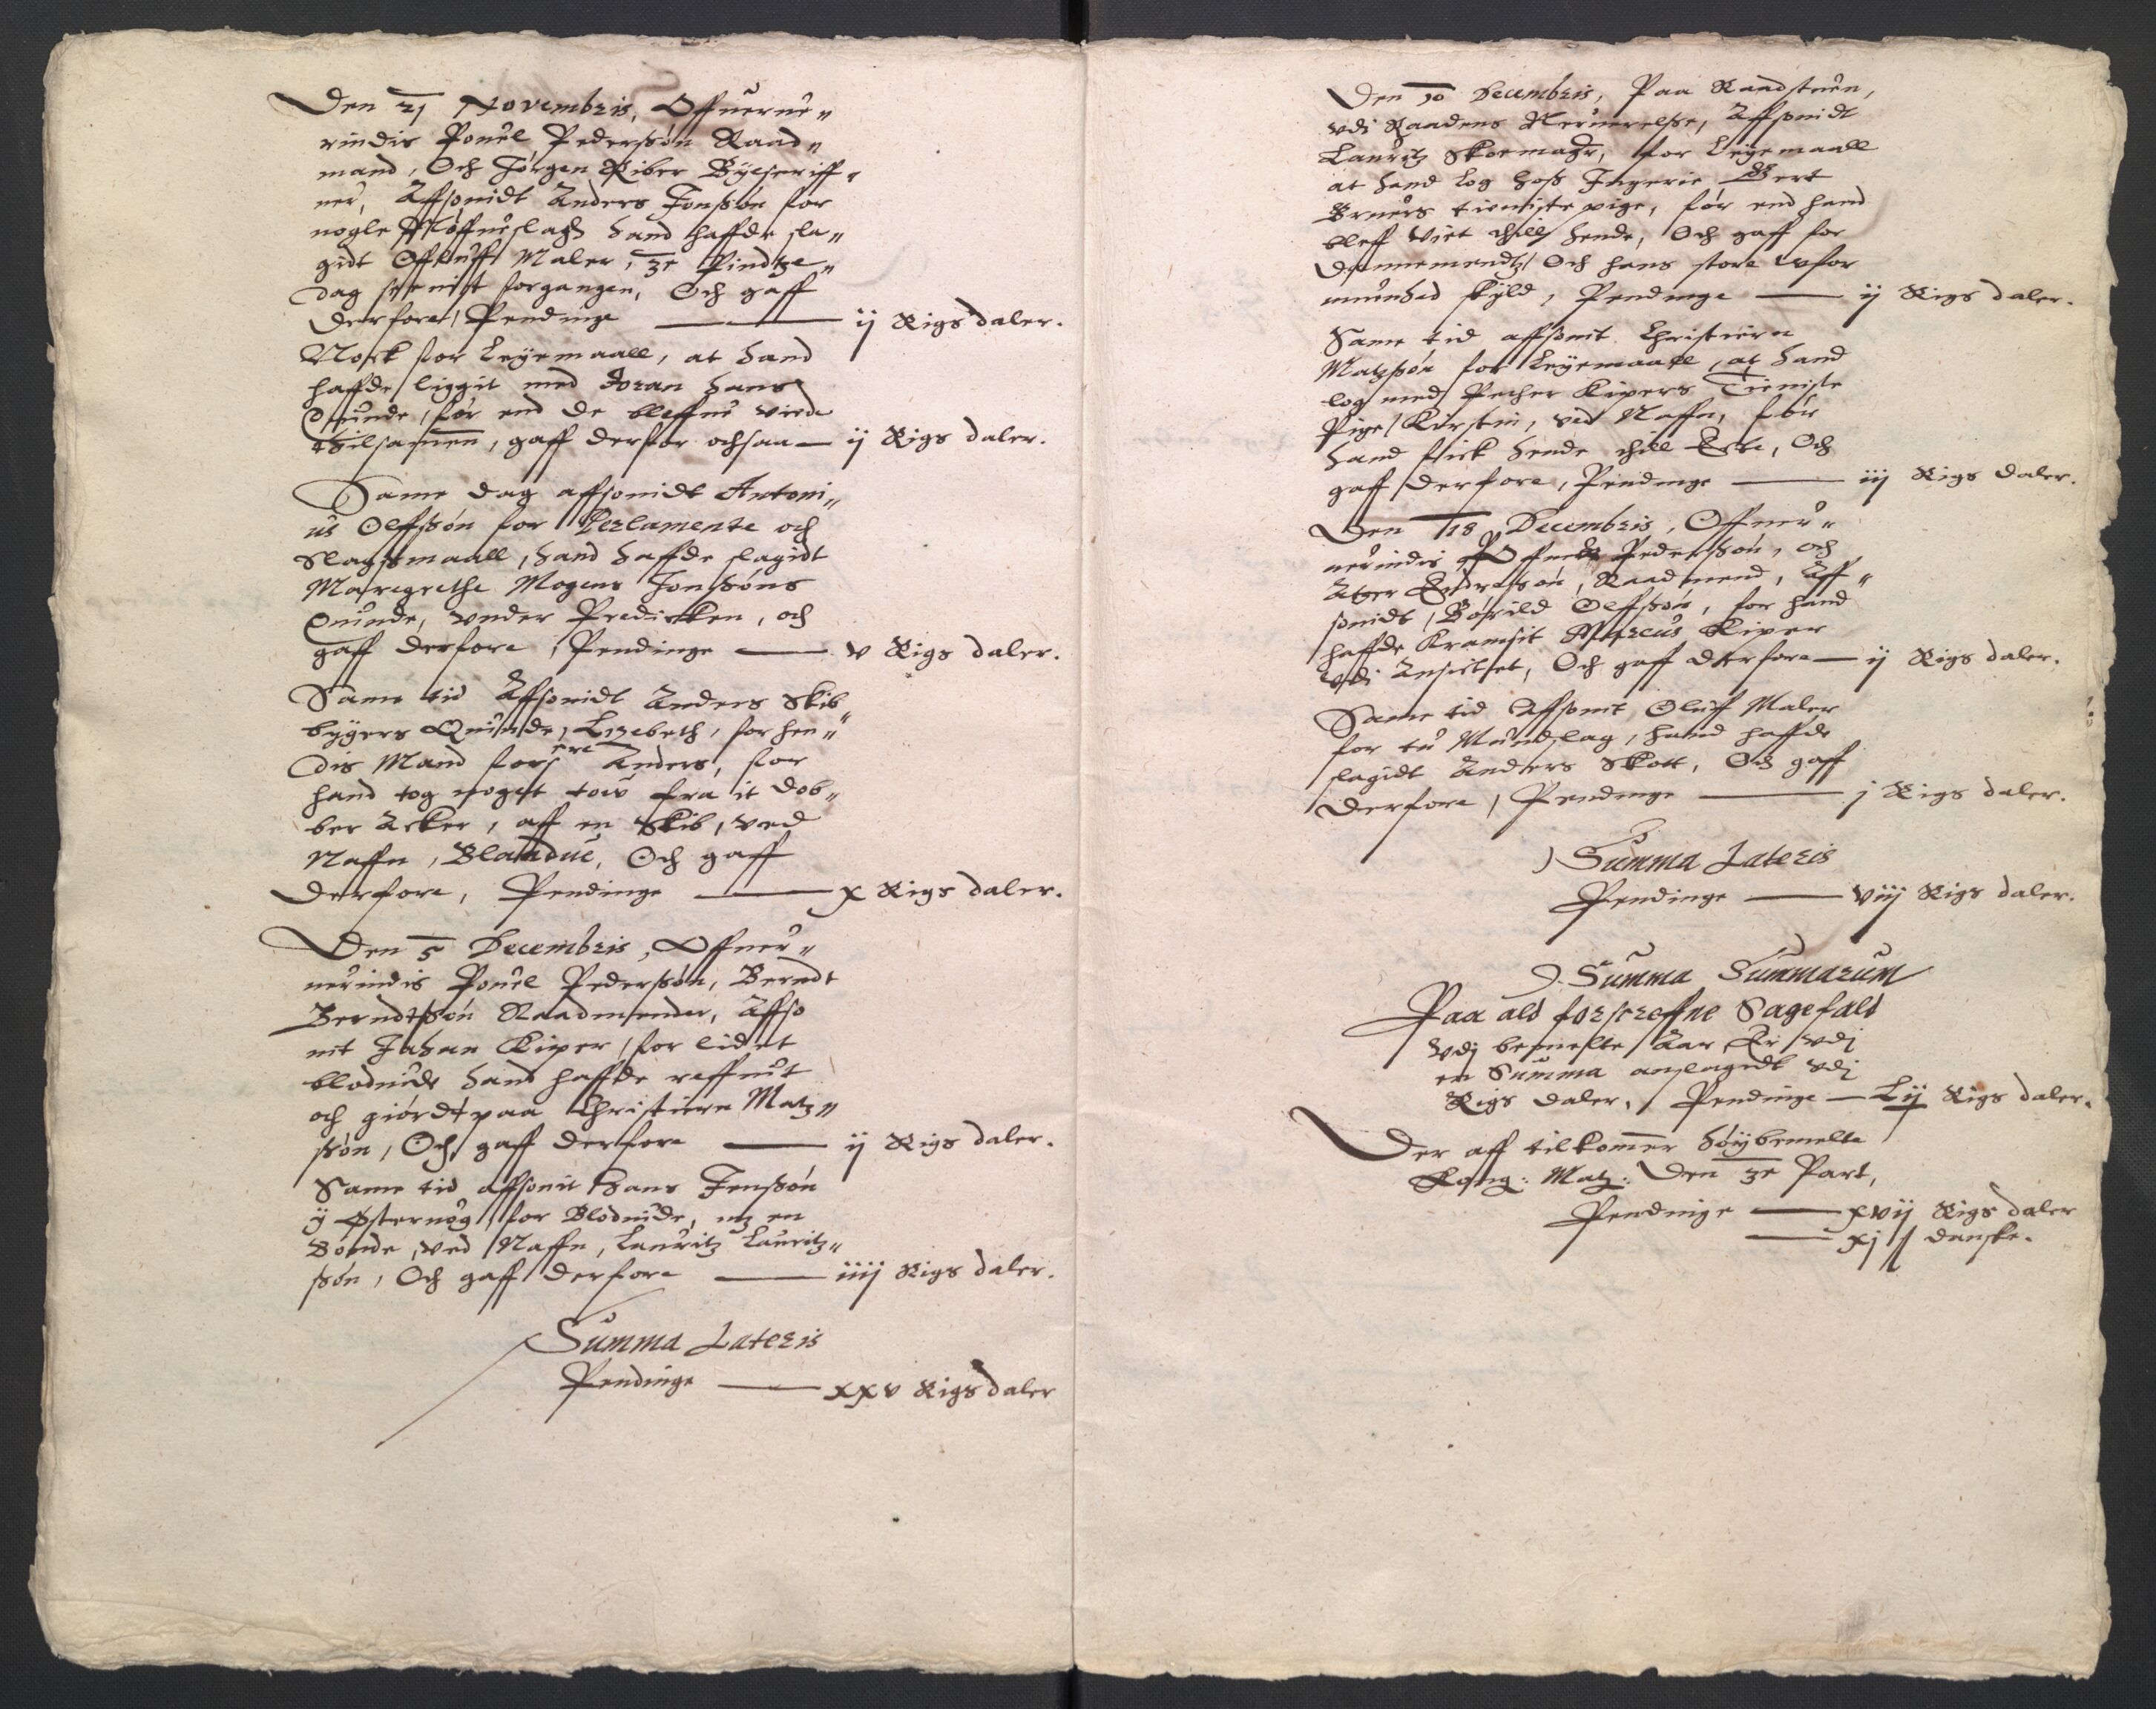 Den 21 Novembris, Offuerue„
rindis Pouel Pederssøn Raad„
mand, Och Jørgen Riber Byescriff„
uer, Affsonidt Anders Jonssøn for
nogle Næffueslag hand haffde sla„
gidt Offluff Maler, 3e Pindtze„
dag sienist forgangen, Och gaff
derfore, Pendinge — ij Rigs daler.
Nock for Leyemaall, at hand
haffde liggit med Joran hans
Quinde, før end de bleffue viede
thilsamen, gaff derfor ochsaa — ij Rigs daler.
Same dag affsonidt Antoni„
us Olffssøn for Perlamente och
Slagsmaall, hand haffde slagidt
Maregrethe Mogens Jonssøns
Quinde, vnder Predicken, och
gaff derfore, Pendinge — v Rigs daler.
Same tid Affsonidt Anders Skib„
bygers Quinde, Lizebeth, for hen„
dis Mand forscre Anders, for
hand tog noget tow fra it dob„
ber Acker, aff en Skib, ved
Naffn, Blandue, Och gaff
derfore, Pendinge — x Rigs daler.
Den 5 Decembris, Offuer„
uerindis Pouel Pederssøn, Berndt
Berndtssøn Raadmender, Affso
nit Johan Kiper, for lidet
bloduide hand haffde reffuit
och giordt paa Christiern Matz„
søn, Och gaff derfore — ij Rigs daler.
Same tid affsonit Hans Jenssøn
ij Østernøg, for Blodvide, mz en
Bonde, ved Naffn, Lauritz Lauritz„
søn, Och gaff derfore — iiij Rigs daler.
Summa Lateris
Pendinge — xxv Rigs daler
Den 10 Decembris, Paa Raadstuen,
vdi Raadens Neruerelsse, Affsonidt
Lauritz Skoemager, for Leyemaall
at hand log hoss Ingerie Bert
Bruers tieniste pige, før end hand
bleff Viet thill hende, Och gaff for
Dannemendz, Och hans store wfor
muenhed skyld, Pendinge — ij Rigs daler.
Same tid affsonit Christiern
Matzsøn for Leyemaall, at hand
log med Pether Kipers Tieniste
Pige Kirstin, ved Naffn, før
hand fick hende thill Ecte, Och
gaff derfore, Pendinge — iij Rigs daler.
Den 18 Decembris, Offuer„
uerindis Pouel Pederssøn, och
Anders­søn, Raadmend, Aff„
sonidt, Børild Olffssøn, for hand
haffde Kramsit Marcus Kiper
vdi Ansictet, Och gaff derfore — ij Rigs daler.
Same tid Affsonit Oluff Maler
for tu Mundslag, hand haffde
slagidt Anders Skott, Och gaff
derfore, Pendinge — j Rigs daler.
Summa Lateris
Pendinge — viij Rigs daler.
Summa Summarum
Paa ald forscreffne Sagefald
vdj bemelte Aar Er vdj
en Summa anslagedt vdj
Rigs daler, Pendinge — Lij Rigs daler.
Der aff tilkomer høybemelte
Kong: Matz: Den 3e Part,
Pendinge — xvij Rigs daler
— xj ß danske.